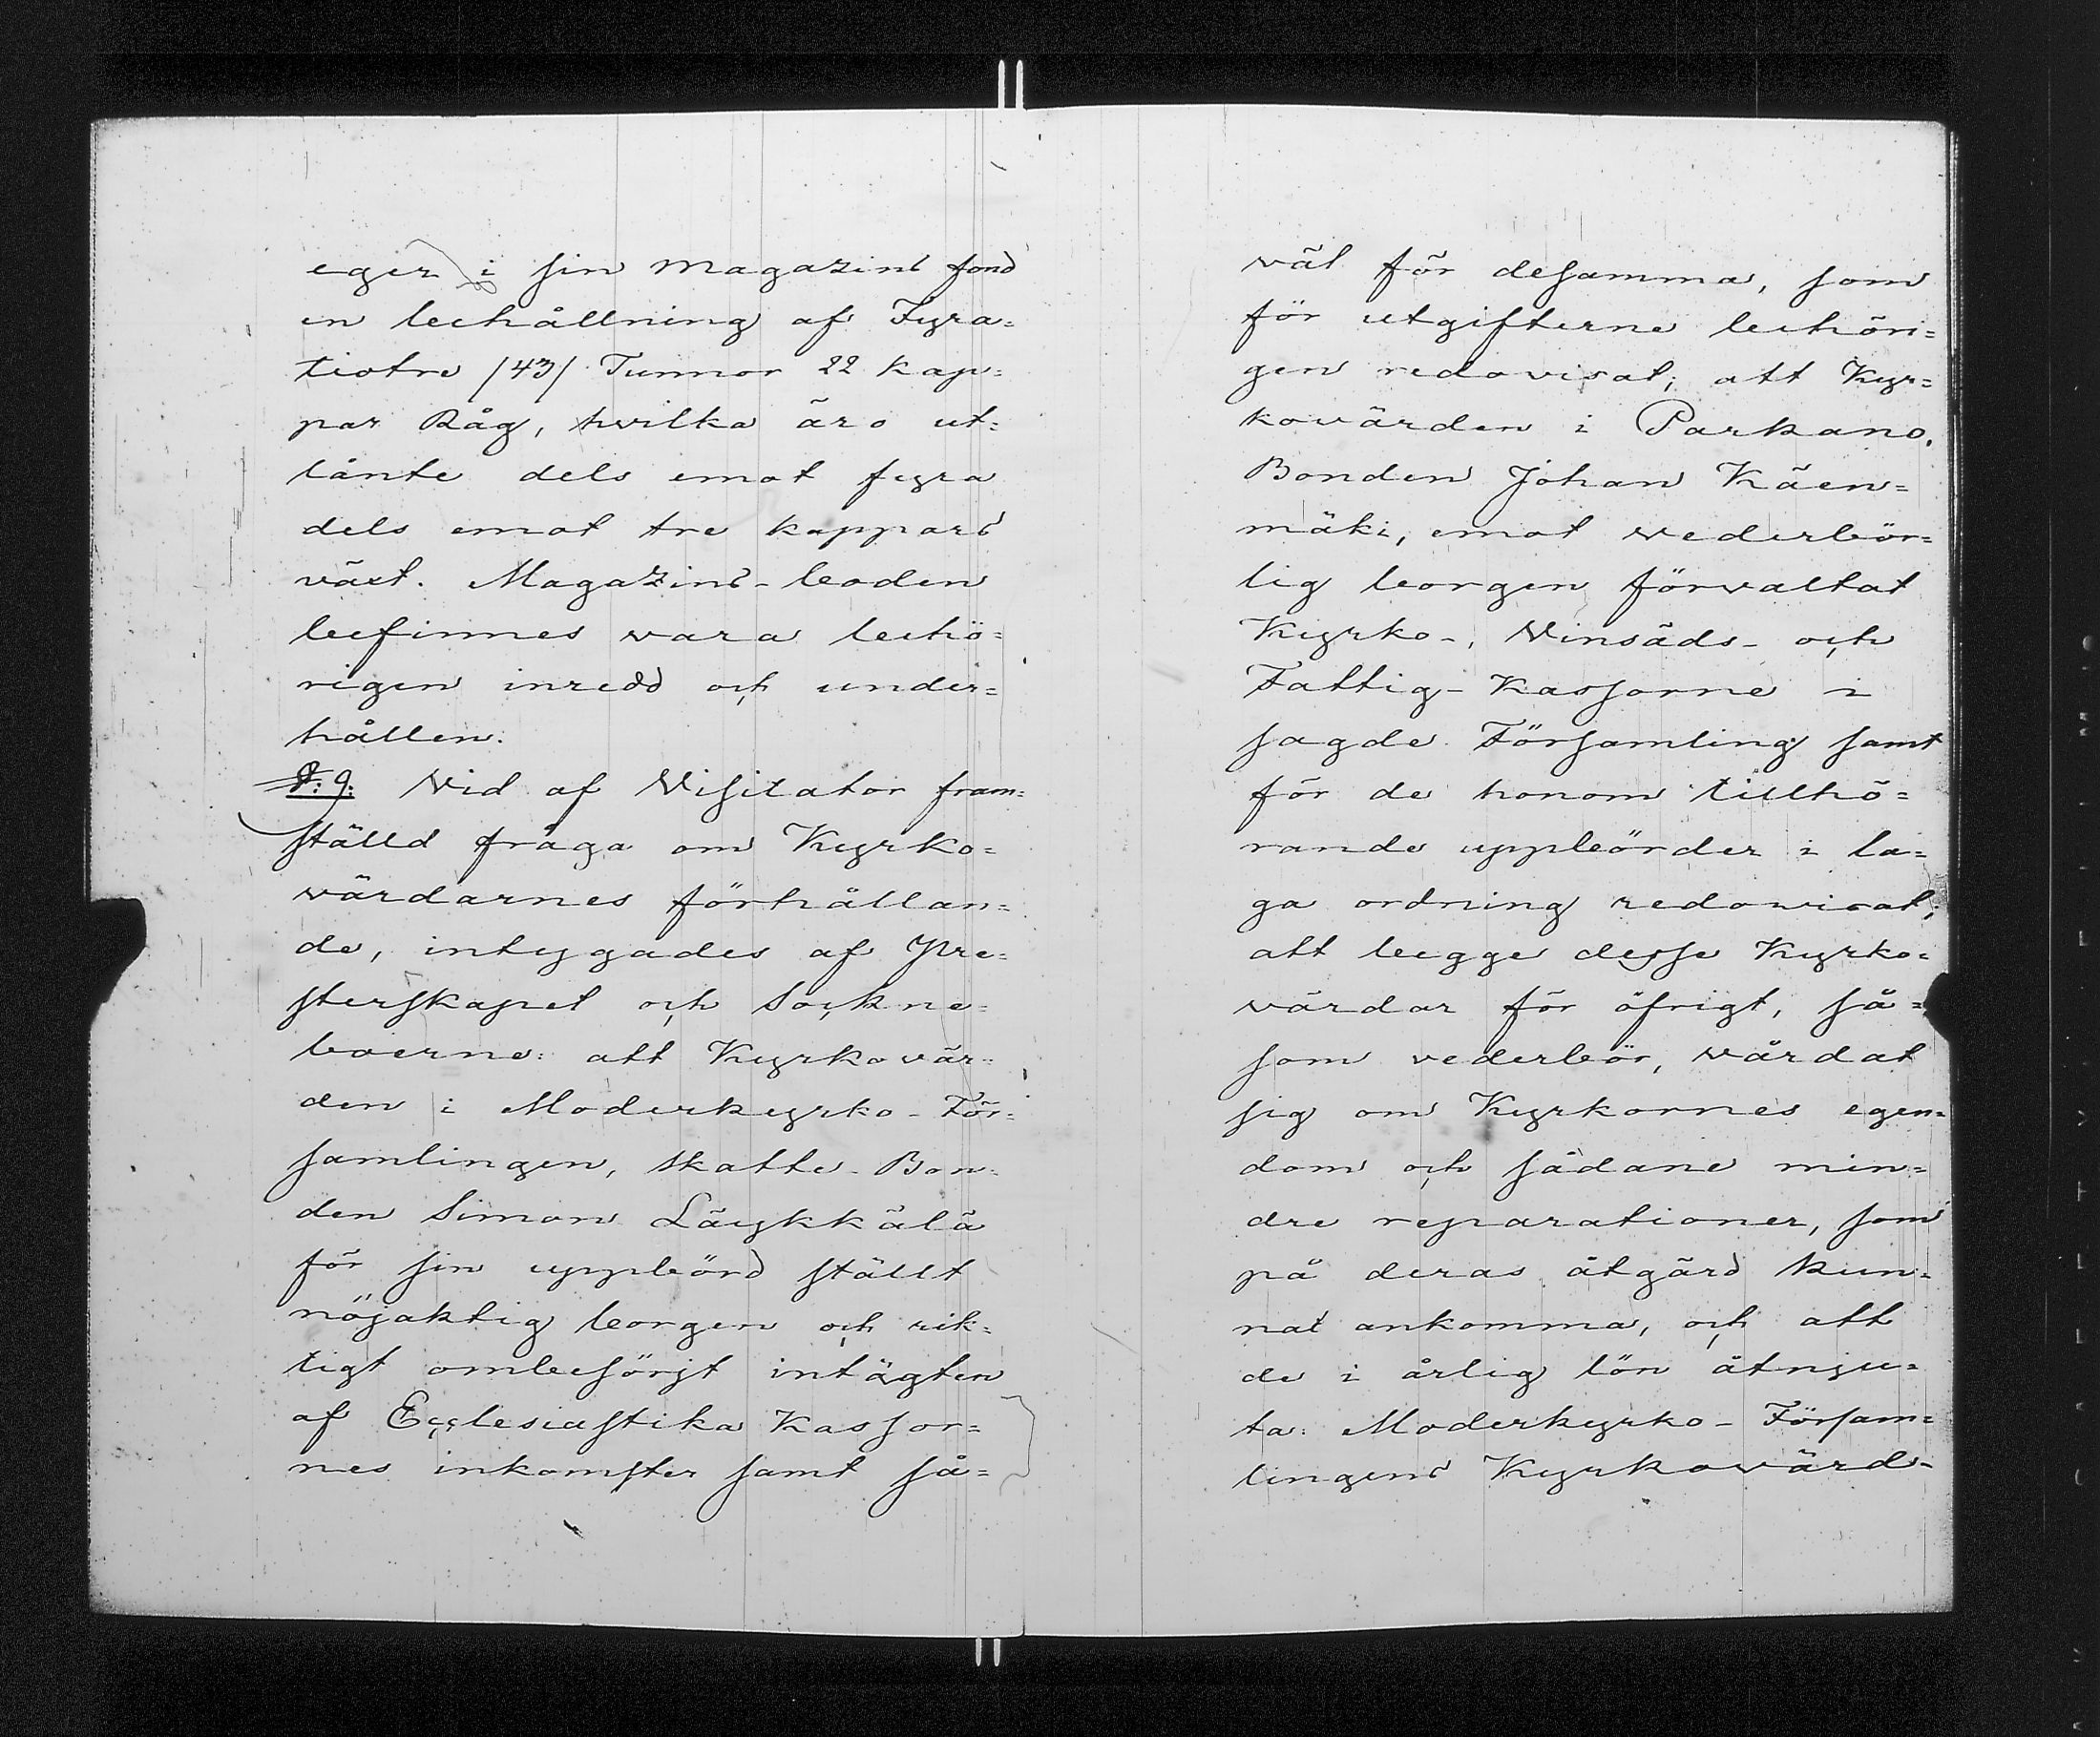 eger i sin Magazins fond
en behållning af Fyra=
tiotre /43/ Tunnor 22 kap=
par Råg, hvilka äro ut=
lånte dels emot fyra
dels emot tre kappars
växt. Magazins-boden
befinnes vara behö=
rigen inredd och under=
hållen.
§: 9: Vid af Visitator fram=
ställd fråga om Kyrko=
värdarnes förhållan=
de, intygades af Pre=
sterskapet och Sockne=
boerne: att Kyrkovär=
den i Moderkyrko-För=
samlingen, Skatte-Bon=
den Simon Läykkälä
för sin uppbörd ställt
nöjaktig borgen och rik=
tigt ombesörjt intägten
af Ecclesiastika Kassor=
nes inkomster samt så=
väl för desamma, som
för utgifterne behöri=
gen redovisat; att Kyr=
kovärden i Parkano,
Bonden Johan Käen=
mäki, emot vederbör=
lig borgen förvaltat
Kyrko-, Vinsäds- och
Fattig-Kassorne i
sagde Församling samt
för de honom tillhö=
rande uppbörder i la=
ga ordning redovisat;
att begge desse Kyrko=
värdar för öfrigt, så=
som vederbör, vårdat
sig om Kyrkornes egen=
dom och sådane min=
dre reparationer, som
på deras åtgärd kun=
nat ankomma, och att
de i årlig lön åtnju=
ta: Moderkyrko-Försam=
lingens Kyrkovärd-